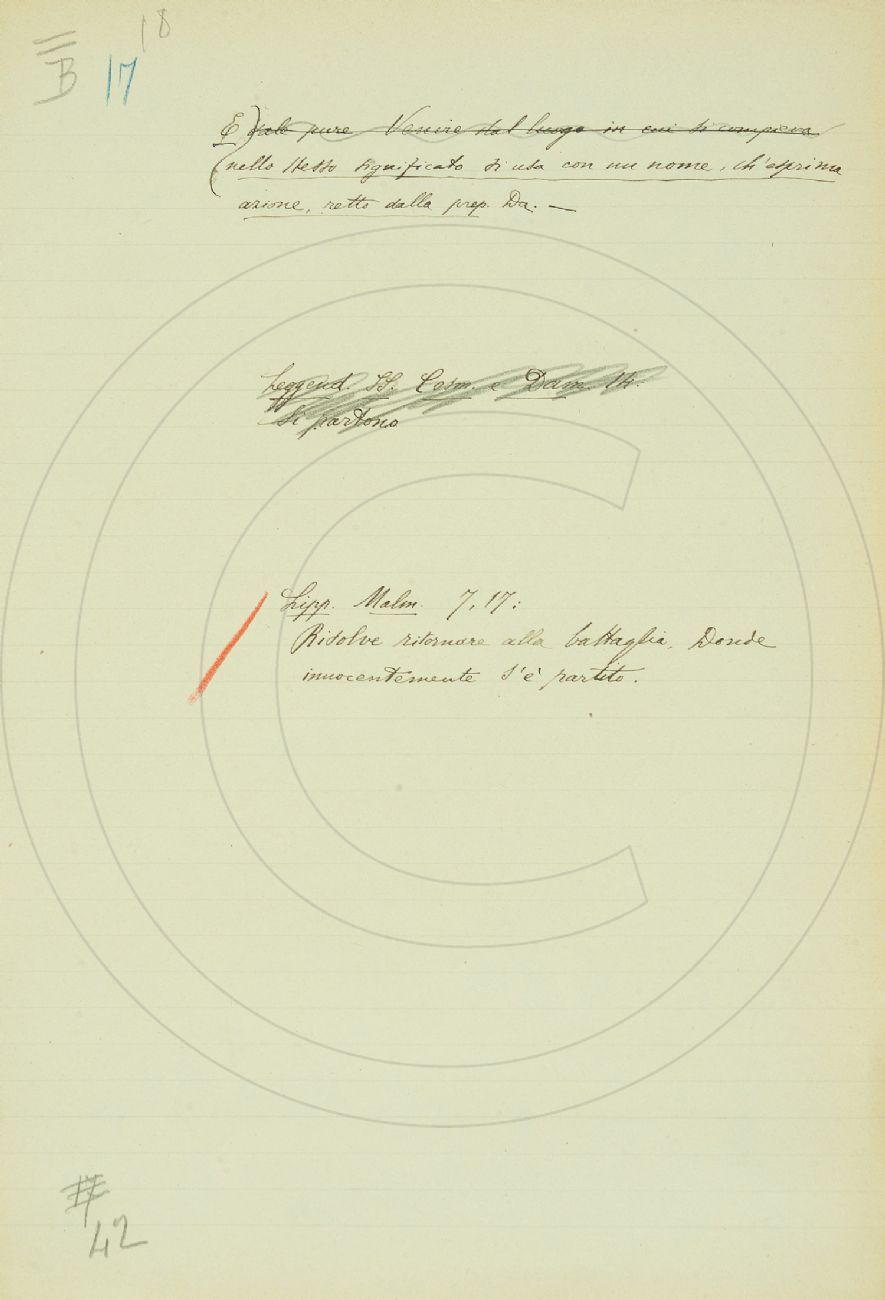 18
B 17
E vale pure Venire dal luogo in cui si compieva
(nello stesso significato si usa con un nome, ch'esprima
azione, retto dalla prep. Da. —
Leggend. SS. Cosm. e Dam. 14.
Si partono
Lipp. Malm. 7, 17:
Risolve ritornare alla battaglia, Donde
innocentemente s'è partito.
#
42